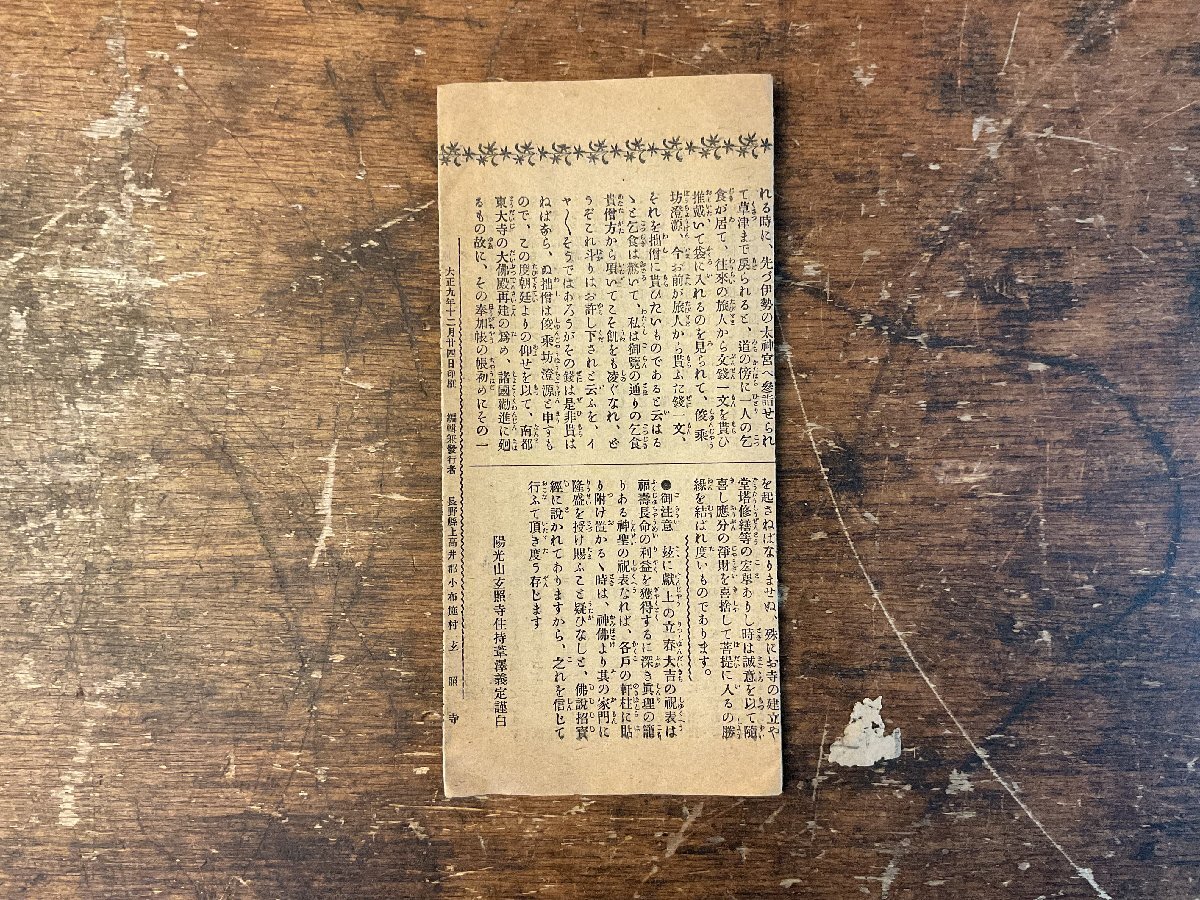 れる時に、先づ伊勢の大神宮へ參詣せられ
て草津まで戻られると、道の傍に一人の乞
食が居て、往來の旅人から文錢一文を貰ひ
推戴いて袋に入れるのを見られて、俊乘
坊澄源、今お前が旅人から貰ふた錢一文、
それを拙僧に貰ひたいものであると云はる
ゝと乞食は驚いて、私は御覽の通りの乞食
貴僧方から頂いてこそ飢をも凌ぐなれ、ど
うぞこれ斗りはお許し下されと云ふを、イ
ヤ〱そうではあろうがその錢は是非貰は
ねばなら、ぬ拙僧は俊乘坊澄源と申すも
ので、この度朝廷よりの仰せを以て、南都
東大寺の大佛殿再建の爲め、諸國勸進に廻
るもの故に、その奉加帳の帳初めにその一
を起さねばなりませぬ、殊にお寺の建立や
堂塔修繕等の宏擧ありし時は誠意を以て隨
喜し應分の淨財を喜捨して菩提に入るの勝
緣を結ばれ度いものであります。
●御注意 一、玆に獻上の立春大吉の祝表は
福壽長命の利益を獲得するに深き眞理の籠
りある神聖の祝表なれば、各戸の軒柱に貼
り附け置かるゝ時は、神佛より其の家門に
隆盛を授け賜ふこと疑ひなしと、佛說招寳
經に說かれてありますから、之れを信じて
行ふて頂き度う存じます
陽光山玄照寺住持葦澤義定謹白
大正九年十二月廿四日印刷 編輯兼發行者 長野縣上高井郡小布施村 玄照寺